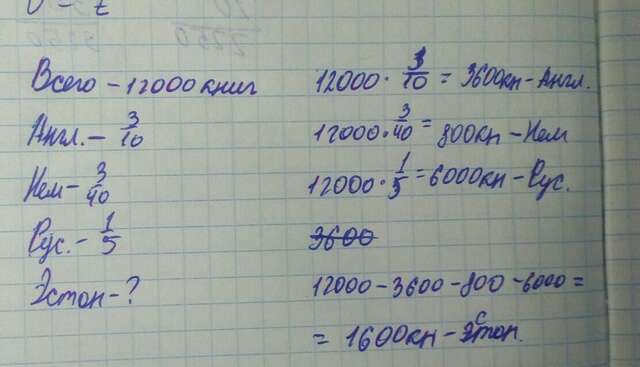 Всего – 12000 книг
Англ. – 3/10
Нем – 3/40
Рус. – 1/5
Эстон – ?
12000 · 3/10 = 3600кн – Англ.
12000 · 3/40 = 800кн – Нем
12000 · 1/5 = 6000кн – Рус.
3600
12000 – 3600 – 800 – 6000 =
= 1600кн – Эстон.